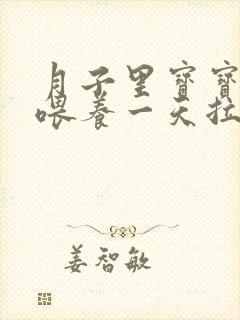 月子里寶寶
喂養一天拉
姜智敏